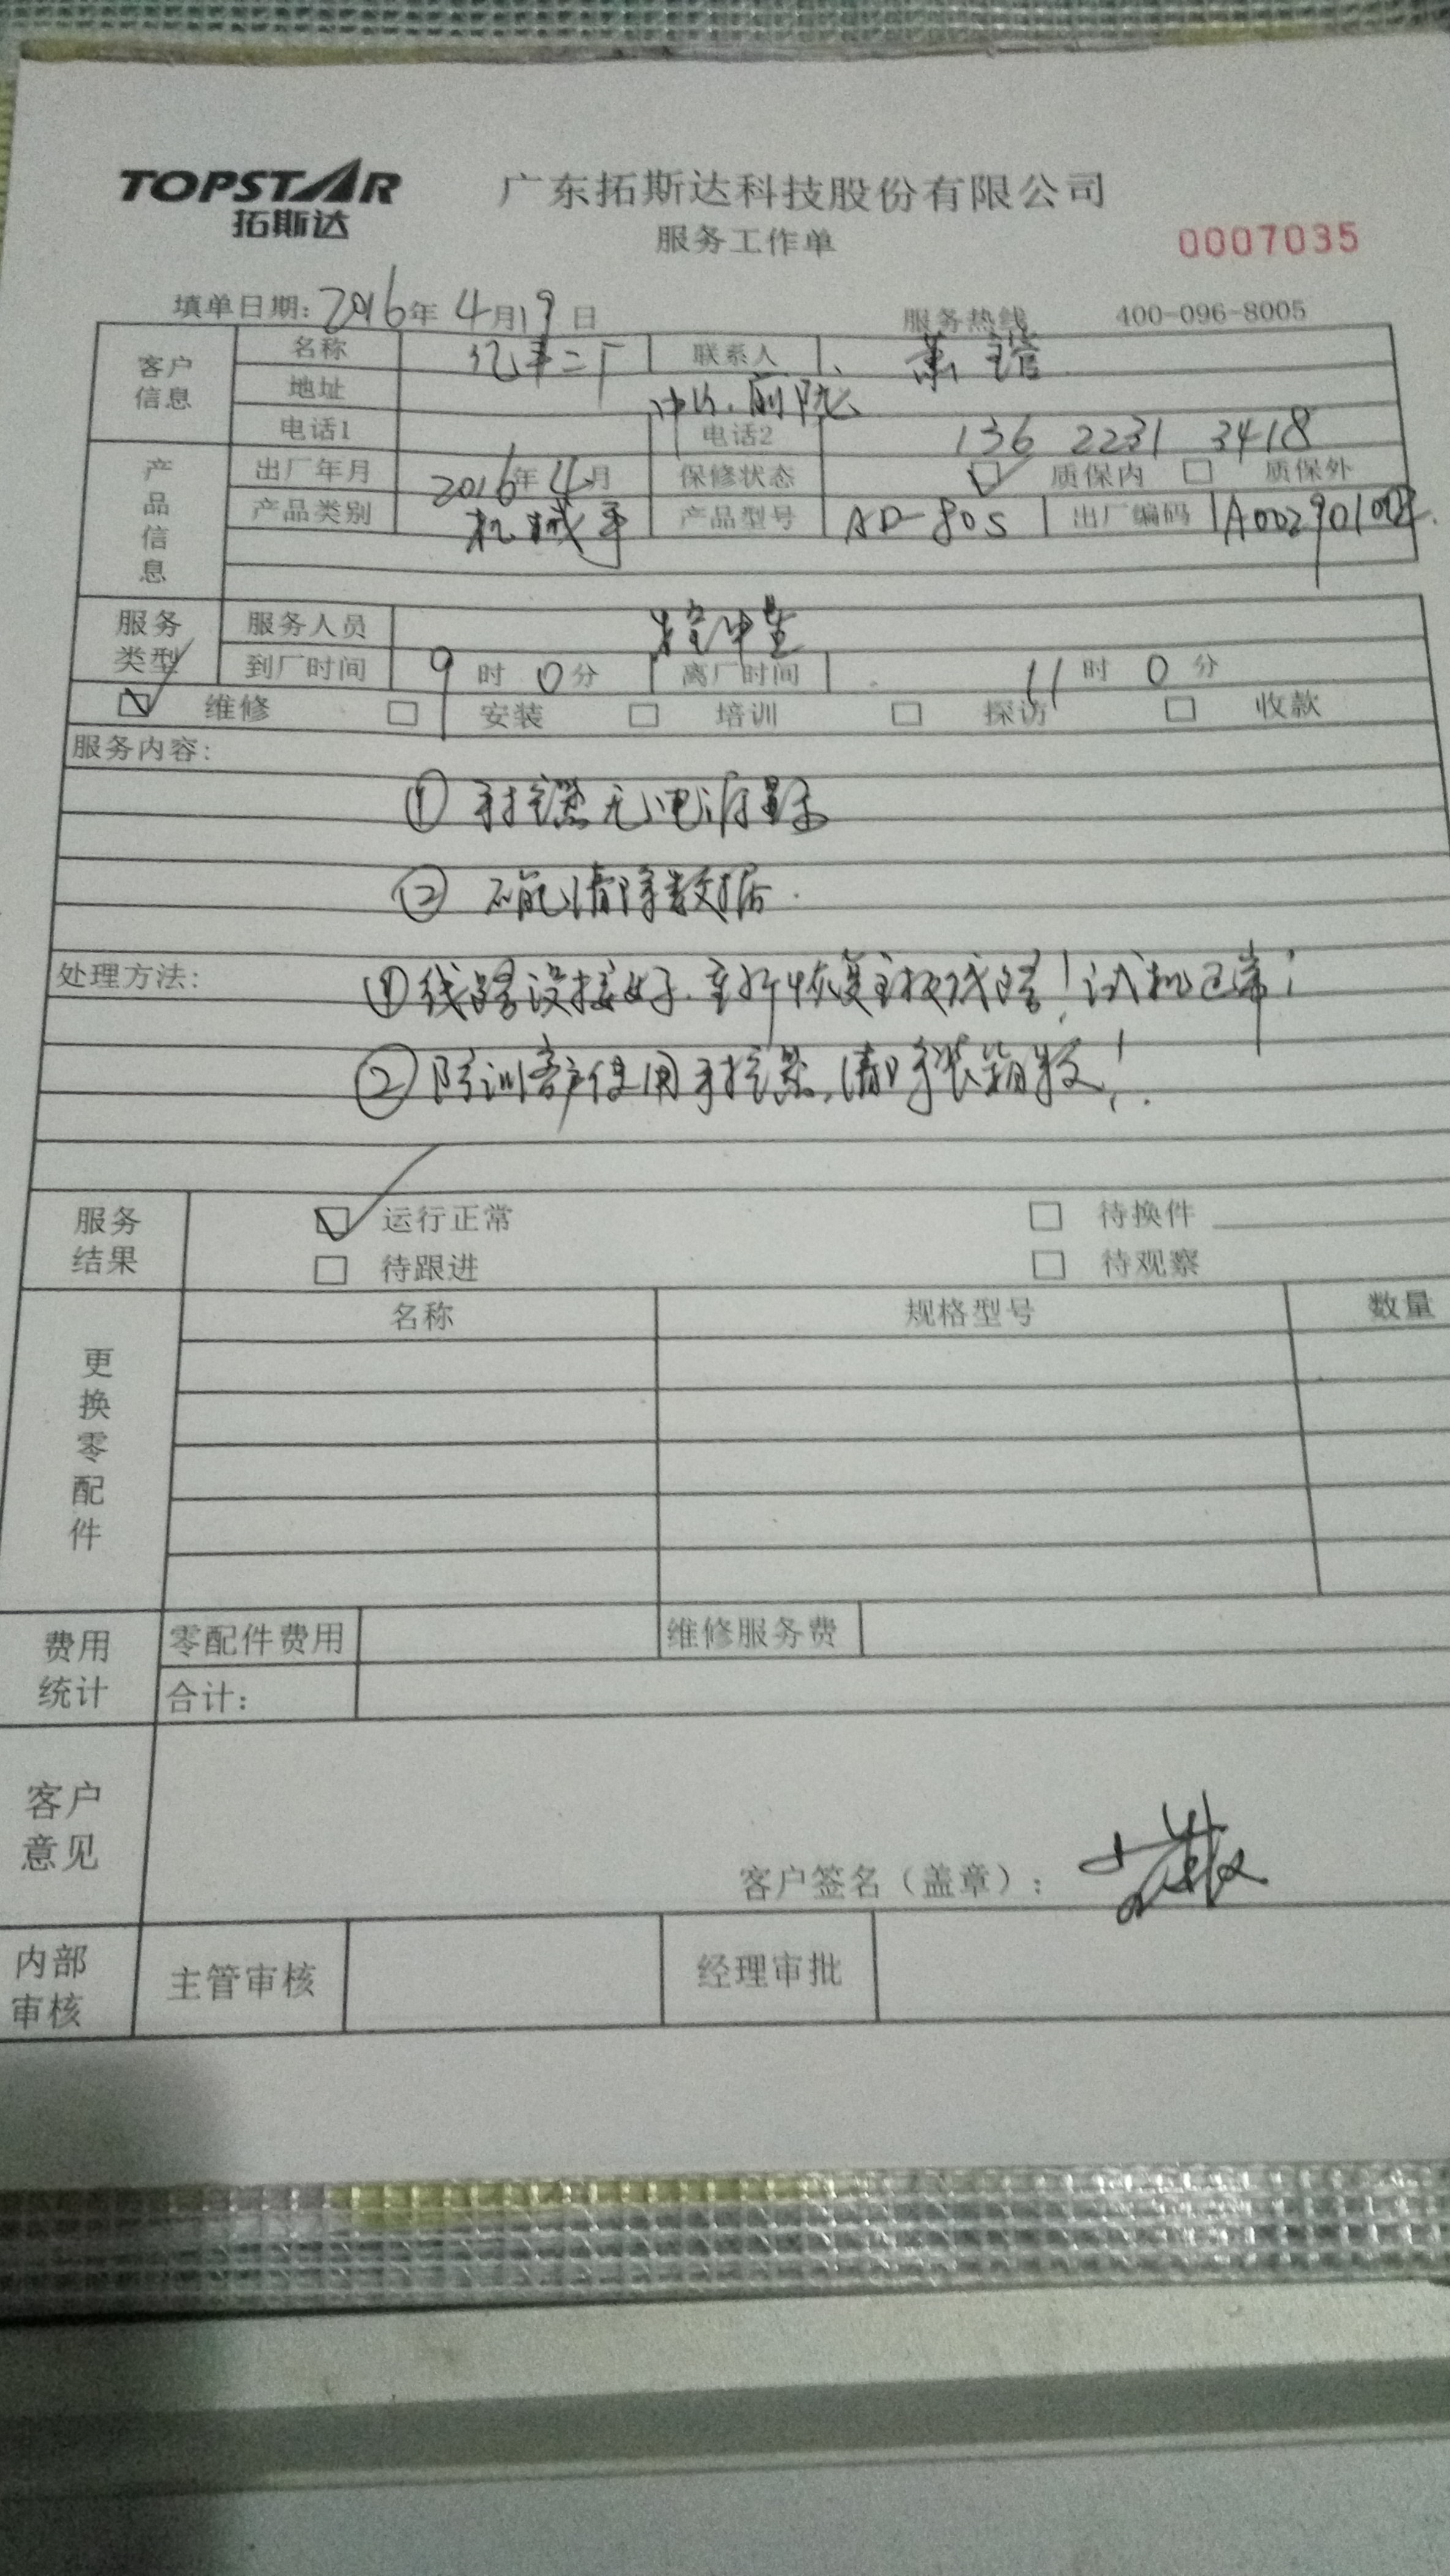 TOPSTAR
拓斯达
广东拓斯达科技股份有限公司
服务工作单
0007035
填单日期: 2016年 4月19日
服务热线 400-096-8005
客户信息
名称 二厂 联系人 萧
地址
电话1 电话2 136 2231 3418
产品信息
出厂年月 2016年4月 保修状态 质保内 质保外
产品类别 机械手 产品型号 AD-80S 出厂编码
服务类型
服务人员
到厂时间 9时0分 离厂时间 11时0分
维修 安装 培训 探访 收款
服务内容:
① 手控器无电源显示
② 不能清除数据.
处理方法:
① 线路没接好.重新恢复主板线路!试机正常!
② 培训客户使用手控器,清除装箱数!
服务结果
运行正常 待换件
待跟进 待观察
更换零配件
名称 规格型号 数量
费用统计
零配件费用 维修服务费
合计:
客户意见
客户签名(盖章):
内部审核
主管审核 经理审批